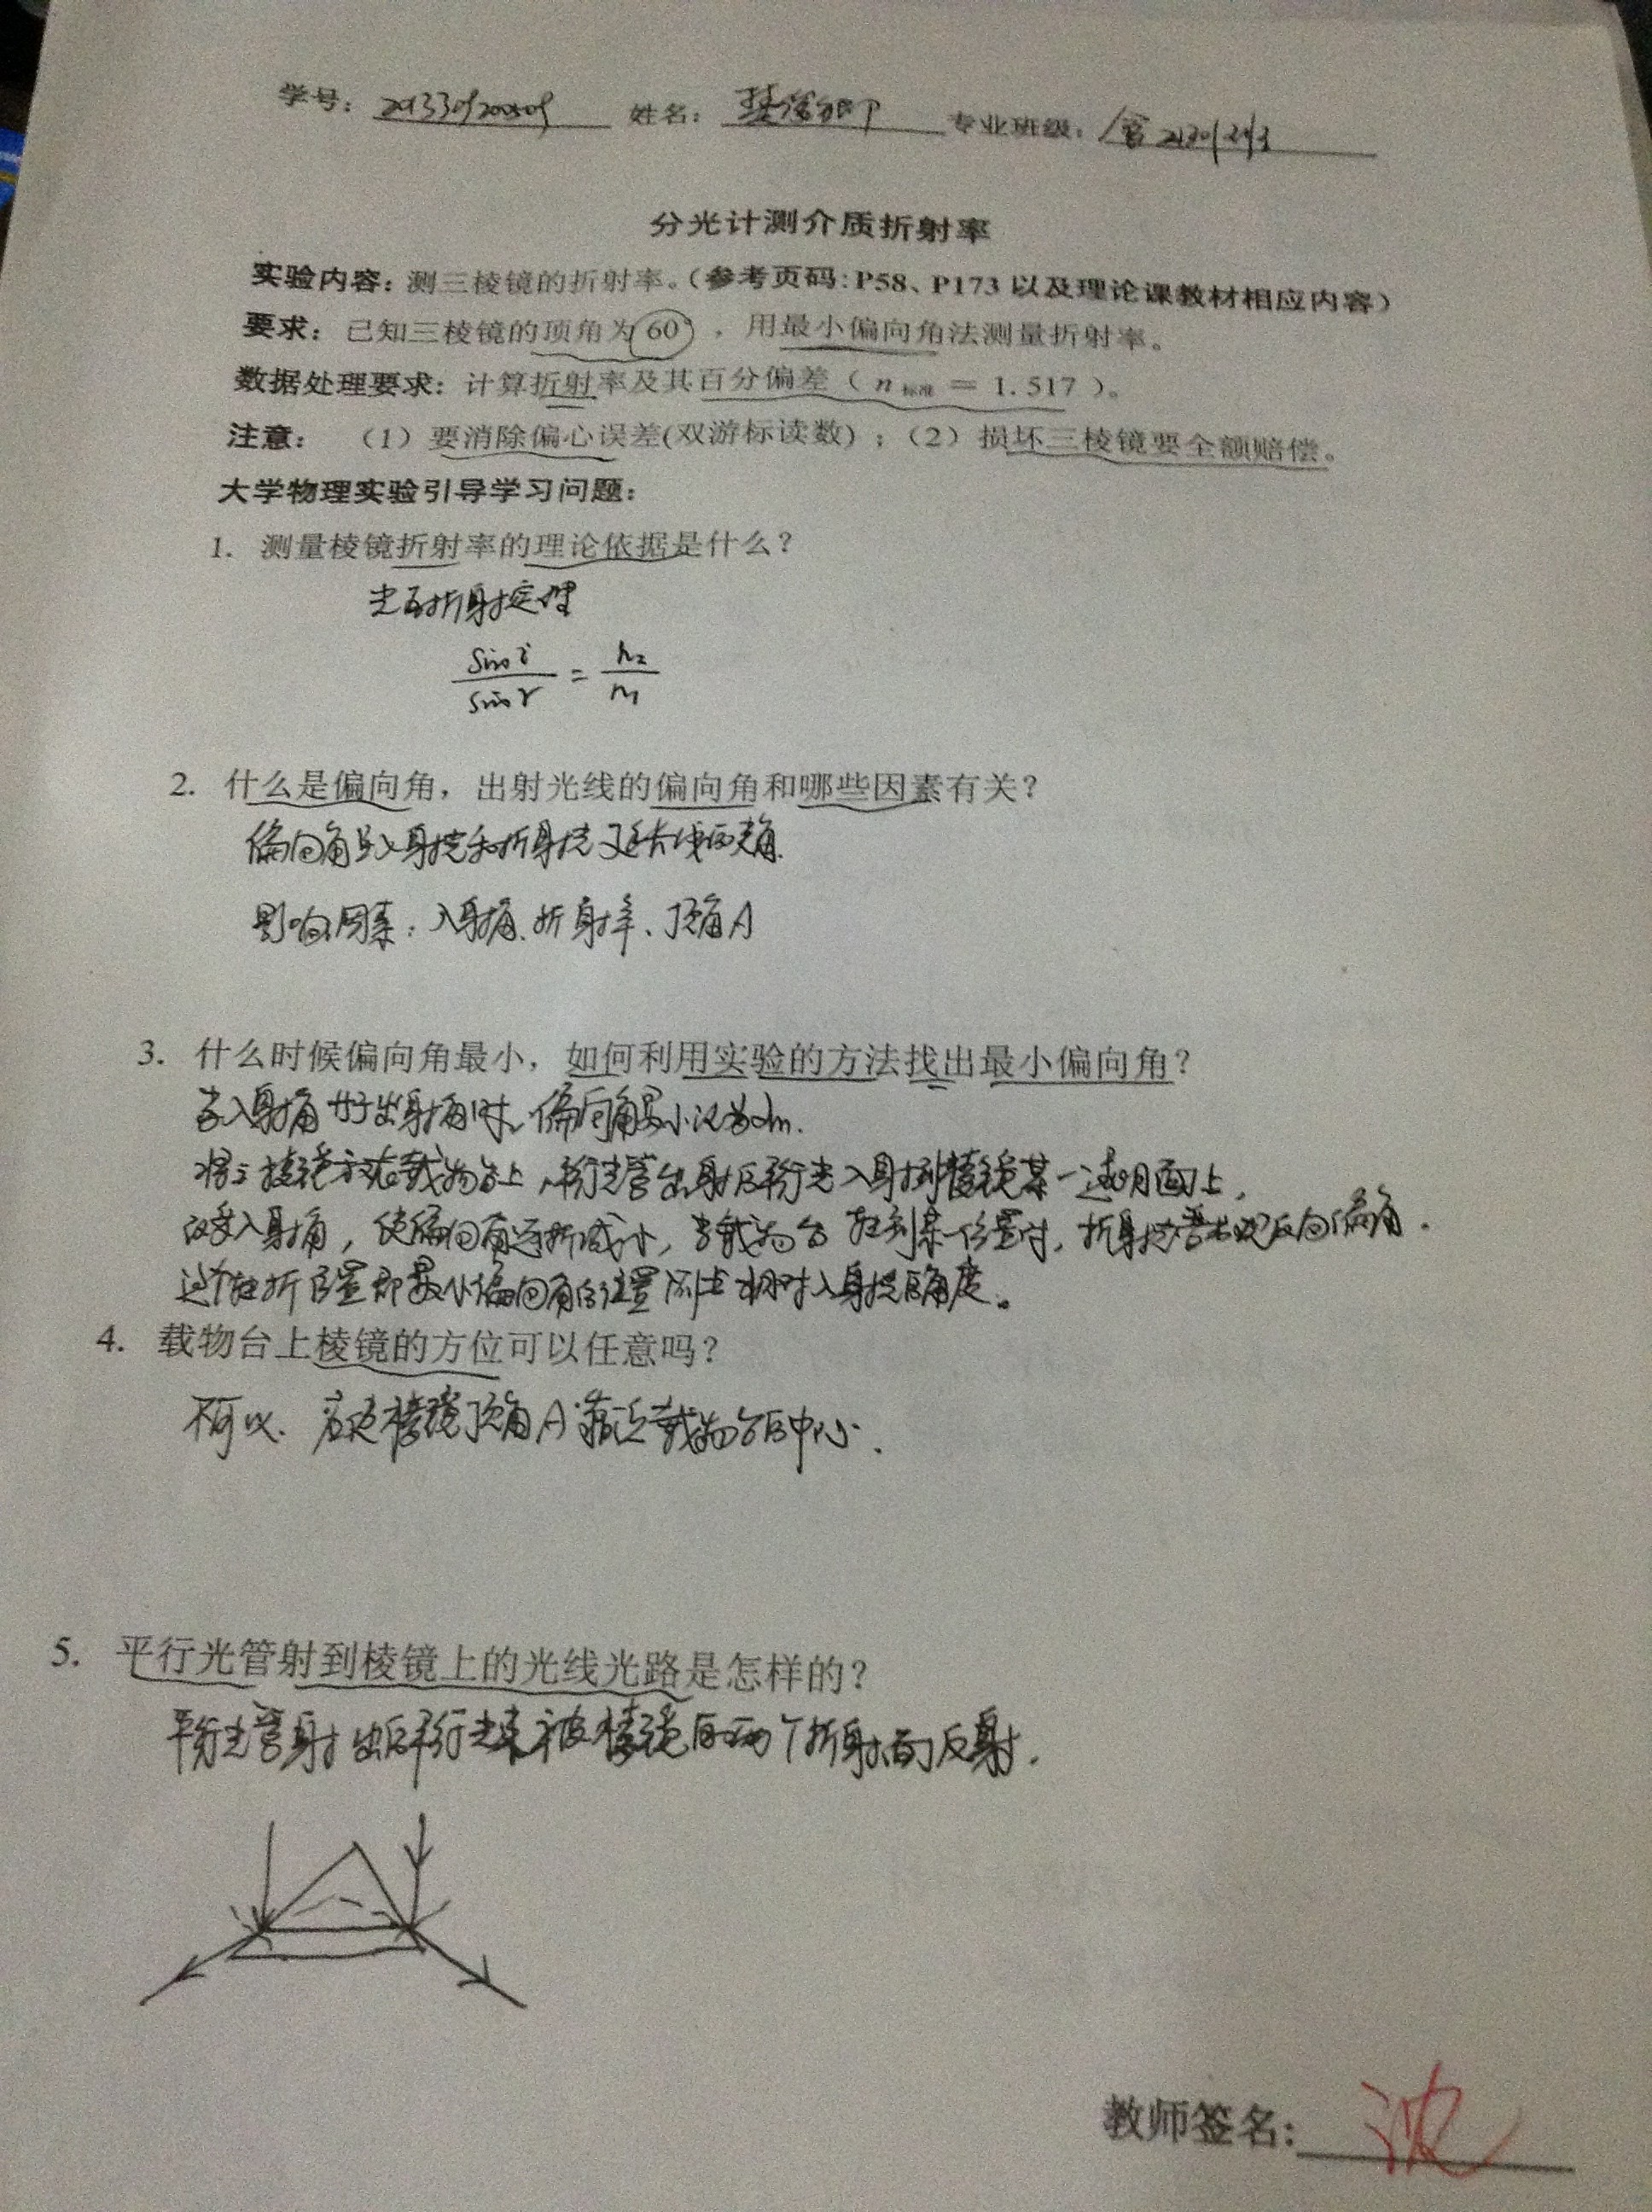 学号： 姓名： 专业班级：
分光计测介质折射率
实验内容：测三棱镜的折射率。（参考页码：P58、P173 以及理论课教材相应内容）
要求：已知三棱镜的顶角为 60°，用最小偏向角法测量折射率。
数据处理要求：计算折射率及其百分偏差（ n 标准 = 1.517 ）。
注意：（1）要消除偏心误差(双游标读数)；（2）损坏三棱镜要全额赔偿。
大学物理实验引导学习问题：
1. 测量棱镜折射率的理论依据是什么？
光的折射定理
sin i / sin r = n2 / n1
2. 什么是偏向角，出射光线的偏向角和哪些因素有关？
偏向角是入射光和折射光延长线的夹角.
影响因素：入射角、折射率、顶角A
3. 什么时候偏向角最小，如何利用实验的方法找出最小偏向角？
当入射角等于出射角时，偏向角最小记为dm.
将三棱镜放在载物台上，平行光管出射的平行光入射到棱镜某一透明面上，
改变入射角，使偏向角逐渐减小，当载物台转到某一位置时，折射光 出现反向偏角.
这个转折位置即最小偏向角的位置 入射光的角度。
4. 载物台上棱镜的方位可以任意吗？
不可以. 应使棱镜顶角A靠近载物台的中心.
5. 平行光管射到棱镜上的光线光路是怎样的？
平行光管射出的平行光束被棱镜的两个折射面反射.
教师签名： 沈